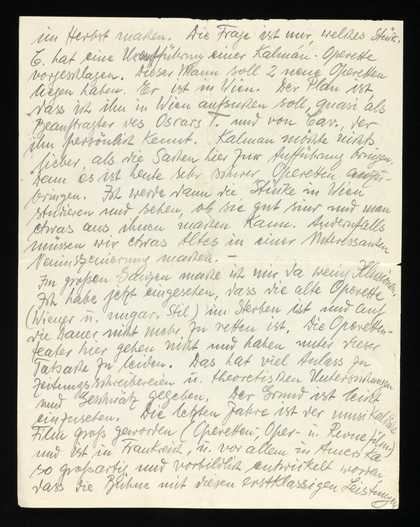 im Herbst machen. Die Frage ist nur, welches Stück.
C. hat eine Uraufführung einer Kálmán-Operette
vorgeschlagen. Dieser Mann soll 2 neue Operetten
liegen haben. Er ist in Wien. Der Plan ist
dass ich ihn in Wien aufsuchen soll, quasi als
Beauftragter des Oscars T. und von Cav., der
ihn persönlich kennt. Kalman möchte nichts
lieber, als die Sachen hier zur Aufführung bringen,
denn es ist heute sehr schwer, Operetten
bringen. Ich werde dann die Stücke in Wien
studieren und sehen, ob sie gut sind und man
etwas aus ihnen machen kann. Andernfalls
müssen wir etwas Altes in einer interessanten
Neuinszenierung machen. —
Im großen Ganzen mache ich mir da wenig Illusionen.
Ich habe jetzt eingesehen, dass die alte Operette
(Wiener u. ungar. Stil) im Sterben ist und auf
die Dauer nicht mehr zu retten ist. Die Operetten-
teater hier gehen nicht und haben unter dieser
Tatsache zu leiden. Das hat viel Anlass zu
Zeitungsschreibereien u. theoretischen Untersuchungen
und Geschwätz gegeben. Der Grund ist leicht
einzusehen. Die letzten Jahre ist der musikalische
Film groß geworden (Operetten-, Oper- u. Revuefilm)
und ist in Frankreich, u. vor allem in Amerika
so großartig und vorbildlich entwickelt worden,
dass die Bühne mit diesen erstklassigen Leistungen